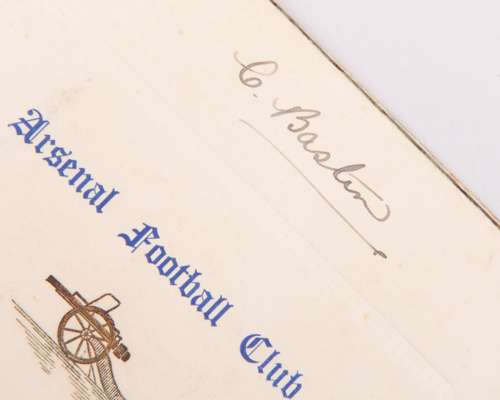 C. Bastin
Arsenal Football Club